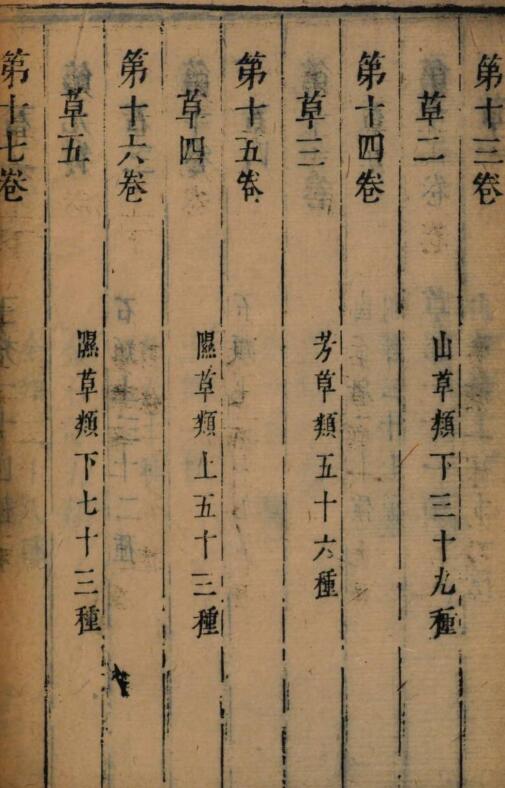 第十三卷
草二 山草類下三十九種
第十四卷
草三 芳草類五十六種
第十五卷
草四 隰草類上五十三種
第十六卷
草五 隰草類下七十三種
第十七卷